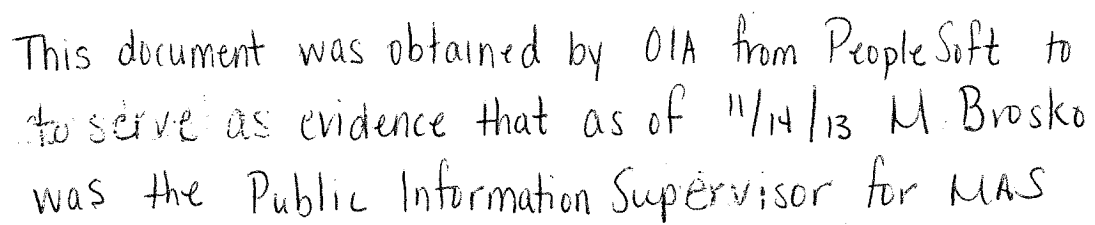 This document was obtained by OIA from PeopleSoft to
to serve as evidence that as of 11/14/13 M. Brosko
was the Public Information Supervisor for MAS